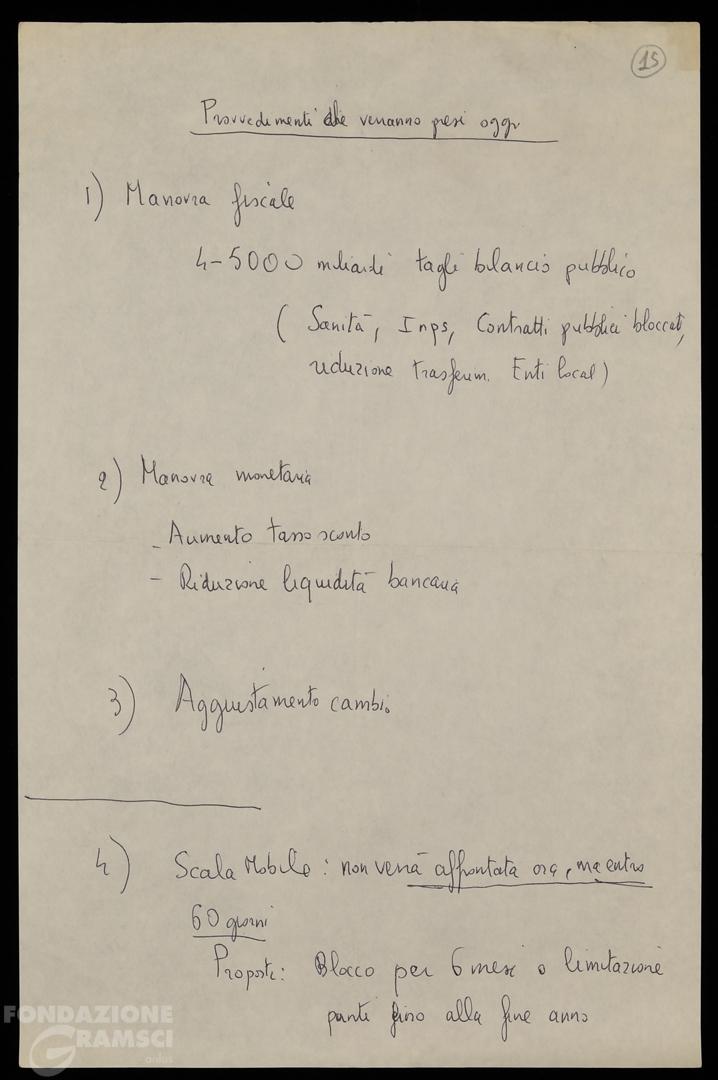 15
Provvedimenti che verranno presi oggi
1) Manovra fiscale
4-5000 miliardi tagli bilancio pubblico
( Sanità, Inps, Contratti pubblici bloccati,
riduzione trasferim. Enti local)
2) Manovra monetaria
- Aumento tasso sconto
- Riduzione liquidità bancaria
3) Aggiustamento cambio
4) Scala Mobile: non verrà affrontata ora, ma entro
60 giorni
Proposte: Blocco per 6 mesi o limitazione
punti fino alla fine anno
FONDAZIONE
GRAMSCI
onlus